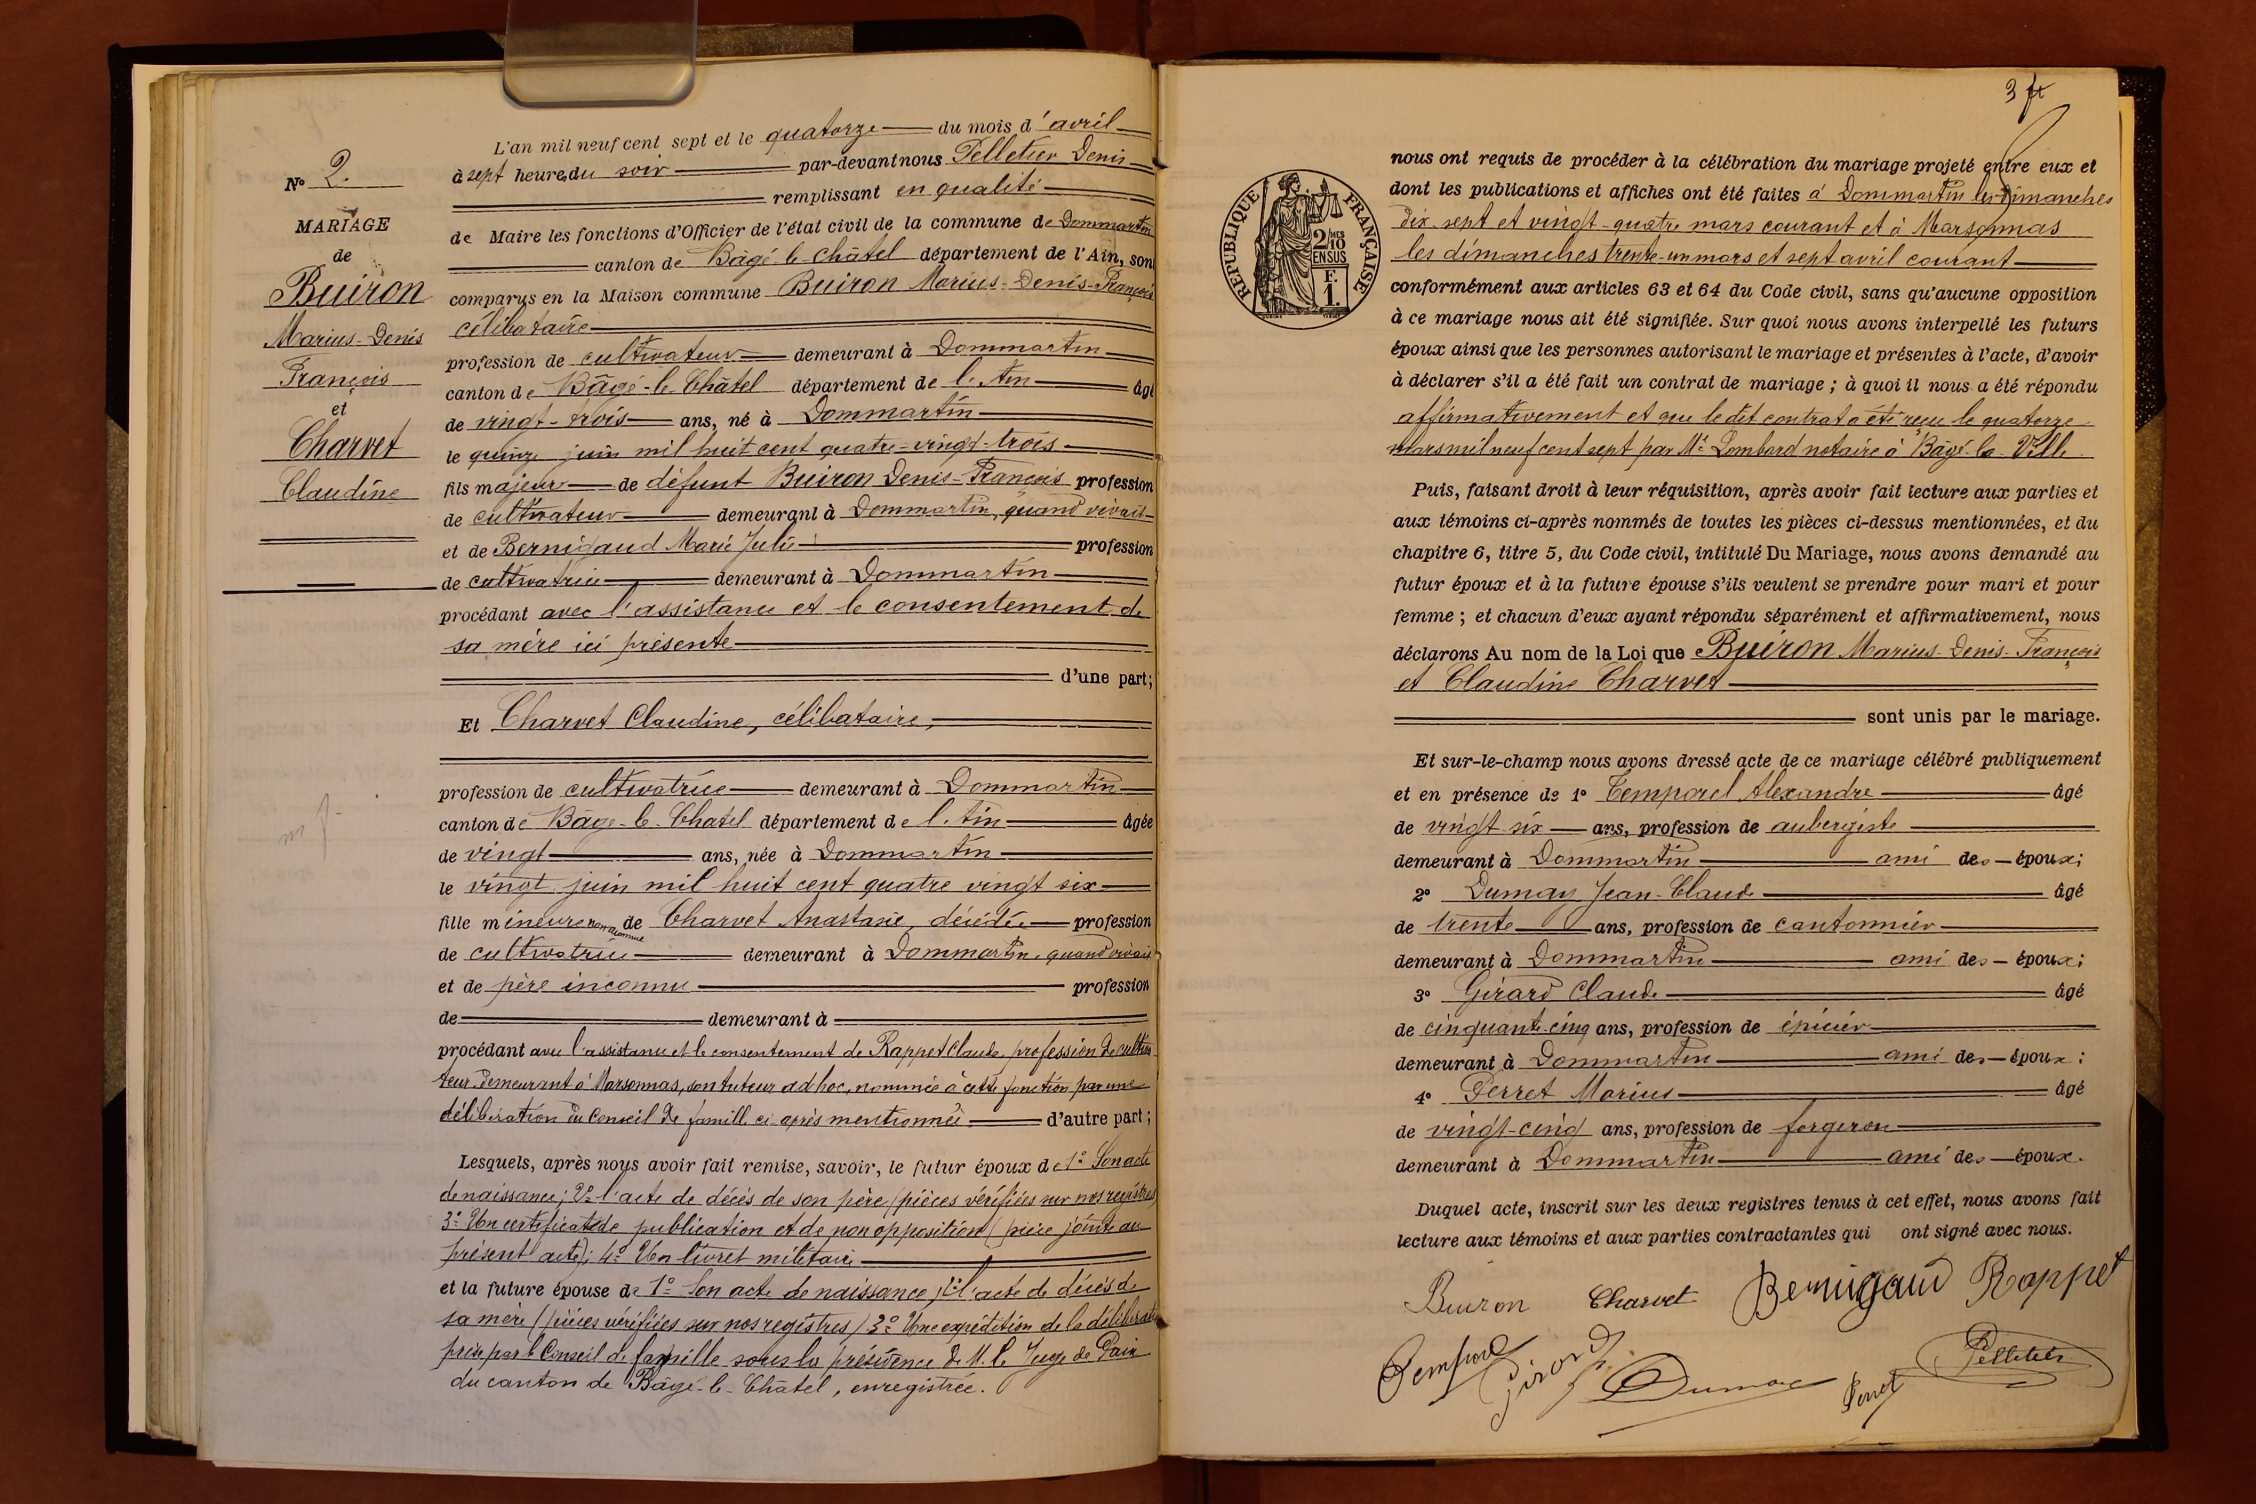 N° 2.
MARIAGE
de
Buiron
Marius-Denis
François
et
Charvet
Claudine
L'an mil neuf cent sept et le quatorze du mois d'avril
à sept heures du soir par-devant nous Pelletier Denis
remplissant en qualité
de Maire les fonctions d'Officier de l'état civil de la commune de Dommartin
canton de Bâgé-le-Châtel département de l'Ain, son
comparus en la Maison commune Buiron Marius-Denis-François
célibataire
profession de cultivateur demeurant à Dommartin
canton de Bâgé-le-Châtel département de l'Ain âgé
de vingt-trois ans, né à Dommartin
le quinze juin mil huit cent quatre-vingt-trois
fils majeur de défunt Buiron Denis-François profession
de cultivateur demeurant à Dommartin, quand vivait
et de Bernigaud Marie Julie profession
de cultivatrice demeurant à Dommartin
procédant avec l'assistance et le consentement de
sa mère ici présente
d'une part;
Et Charvet Claudine, célibataire,
profession de cultivatrice demeurant à Dommartin
canton de Bâgé-le-Châtel département de l'Ain âgée
de vingt ans, née à Dommartin
le vingt juin mil huit cent quatre vingt six
fille mineure non reconnue de Charvet Anastasie, décédée profession
de cultivatrice demeurant à Dommartin, quand vivait
et de père inconnu profession
de demeurant à
procédant avec l'assistance et le consentement de Rappet Claude, profession de cultiva-
teur demeurant à Marsonnas, son tuteur ad hoc, nommée à cette fonction par une
délibération du Conseil de famille ci-après mentionnée d'autre part;
Lesquels, après nous avoir fait remise, savoir, le futur époux de 1° Son acte
de naissance; 2° l'acte de décès de son père (pièces vérifiées sur nos registres)
3° Un certificat de publication et de non opposition (pièce jointe au
présent acte); 4° Un livret militaire
et la future épouse de 1° Son acte de naissance; 2° l'acte de décès de
sa mère (pièces vérifiées sur nos registres) 3° Une expédition de la délibérati
prise par le Conseil de famille sous la présidence de M. le Juge de Paix
du canton de Bâgé-le-Châtel, enregistrée.
3 ft
RÉPUBLIQUE FRANÇAISE
2/10 MES
EN SUS
F.
1.
nous ont requis de procéder à la célébration du mariage projeté entre eux et
dont les publications et affiches ont été faites à Dommartin les Dimanches
dix-sept et vingt-quatre mars courant et à Marsonnas
les dimanches trente-un mars et sept avril courant
conformément aux articles 63 et 64 du Code civil, sans qu'aucune opposition
à ce mariage nous ait été signifiée. Sur quoi nous avons interpellé les futurs
époux ainsi que les personnes autorisant le mariage et présentes à l'acte, d'avoir
à déclarer s'il a été fait un contrat de mariage ; à quoi il nous a été répondu
affirmativement et que le dit contrat a été reçu le quatorze
mars mil neuf cent sept par Me Lombard notaire à Bâgé-la-Ville
Puis, faisant droit à leur réquisition, après avoir fait lecture aux parties et
aux témoins ci-après nommés de toutes les pièces ci-dessus mentionnées, et du
chapitre 6, titre 5, du Code civil, intitulé Du Mariage, nous avons demandé au
futur époux et à la future épouse s'ils veulent se prendre pour mari et pour
femme ; et chacun d'eux ayant répondu séparément et affirmativement, nous
déclarons Au nom de la Loi que Buiron Marius-Denis-François
et Claudine Charvet
sont unis par le mariage.
Et sur-le-champ nous avons dressé acte de ce mariage célébré publiquement
et en présence de 1° Temporel Alexandre âgé
de vingt-six ans, profession de aubergiste
demeurant à Dommartin ami des époux;
2° Dumay Jean-Claude âgé
de trente ans, profession de cantonnier
demeurant à Dommartin ami des époux;
3° Girard Claude âgé
de cinquante-cinq ans, profession de épicier
demeurant à Dommartin ami des époux;
4° Perret Marius âgé
de vingt-cinq ans, profession de forgeron
demeurant à Dommartin ami des époux.
Duquel acte, inscrit sur les deux registres tenus à cet effet, nous avons fait
lecture aux témoins et aux parties contractantes qui ont signé avec nous.
Buiron Charvet Bernigaud Rappet
Temporel Girard Dumay Perret Pelletier